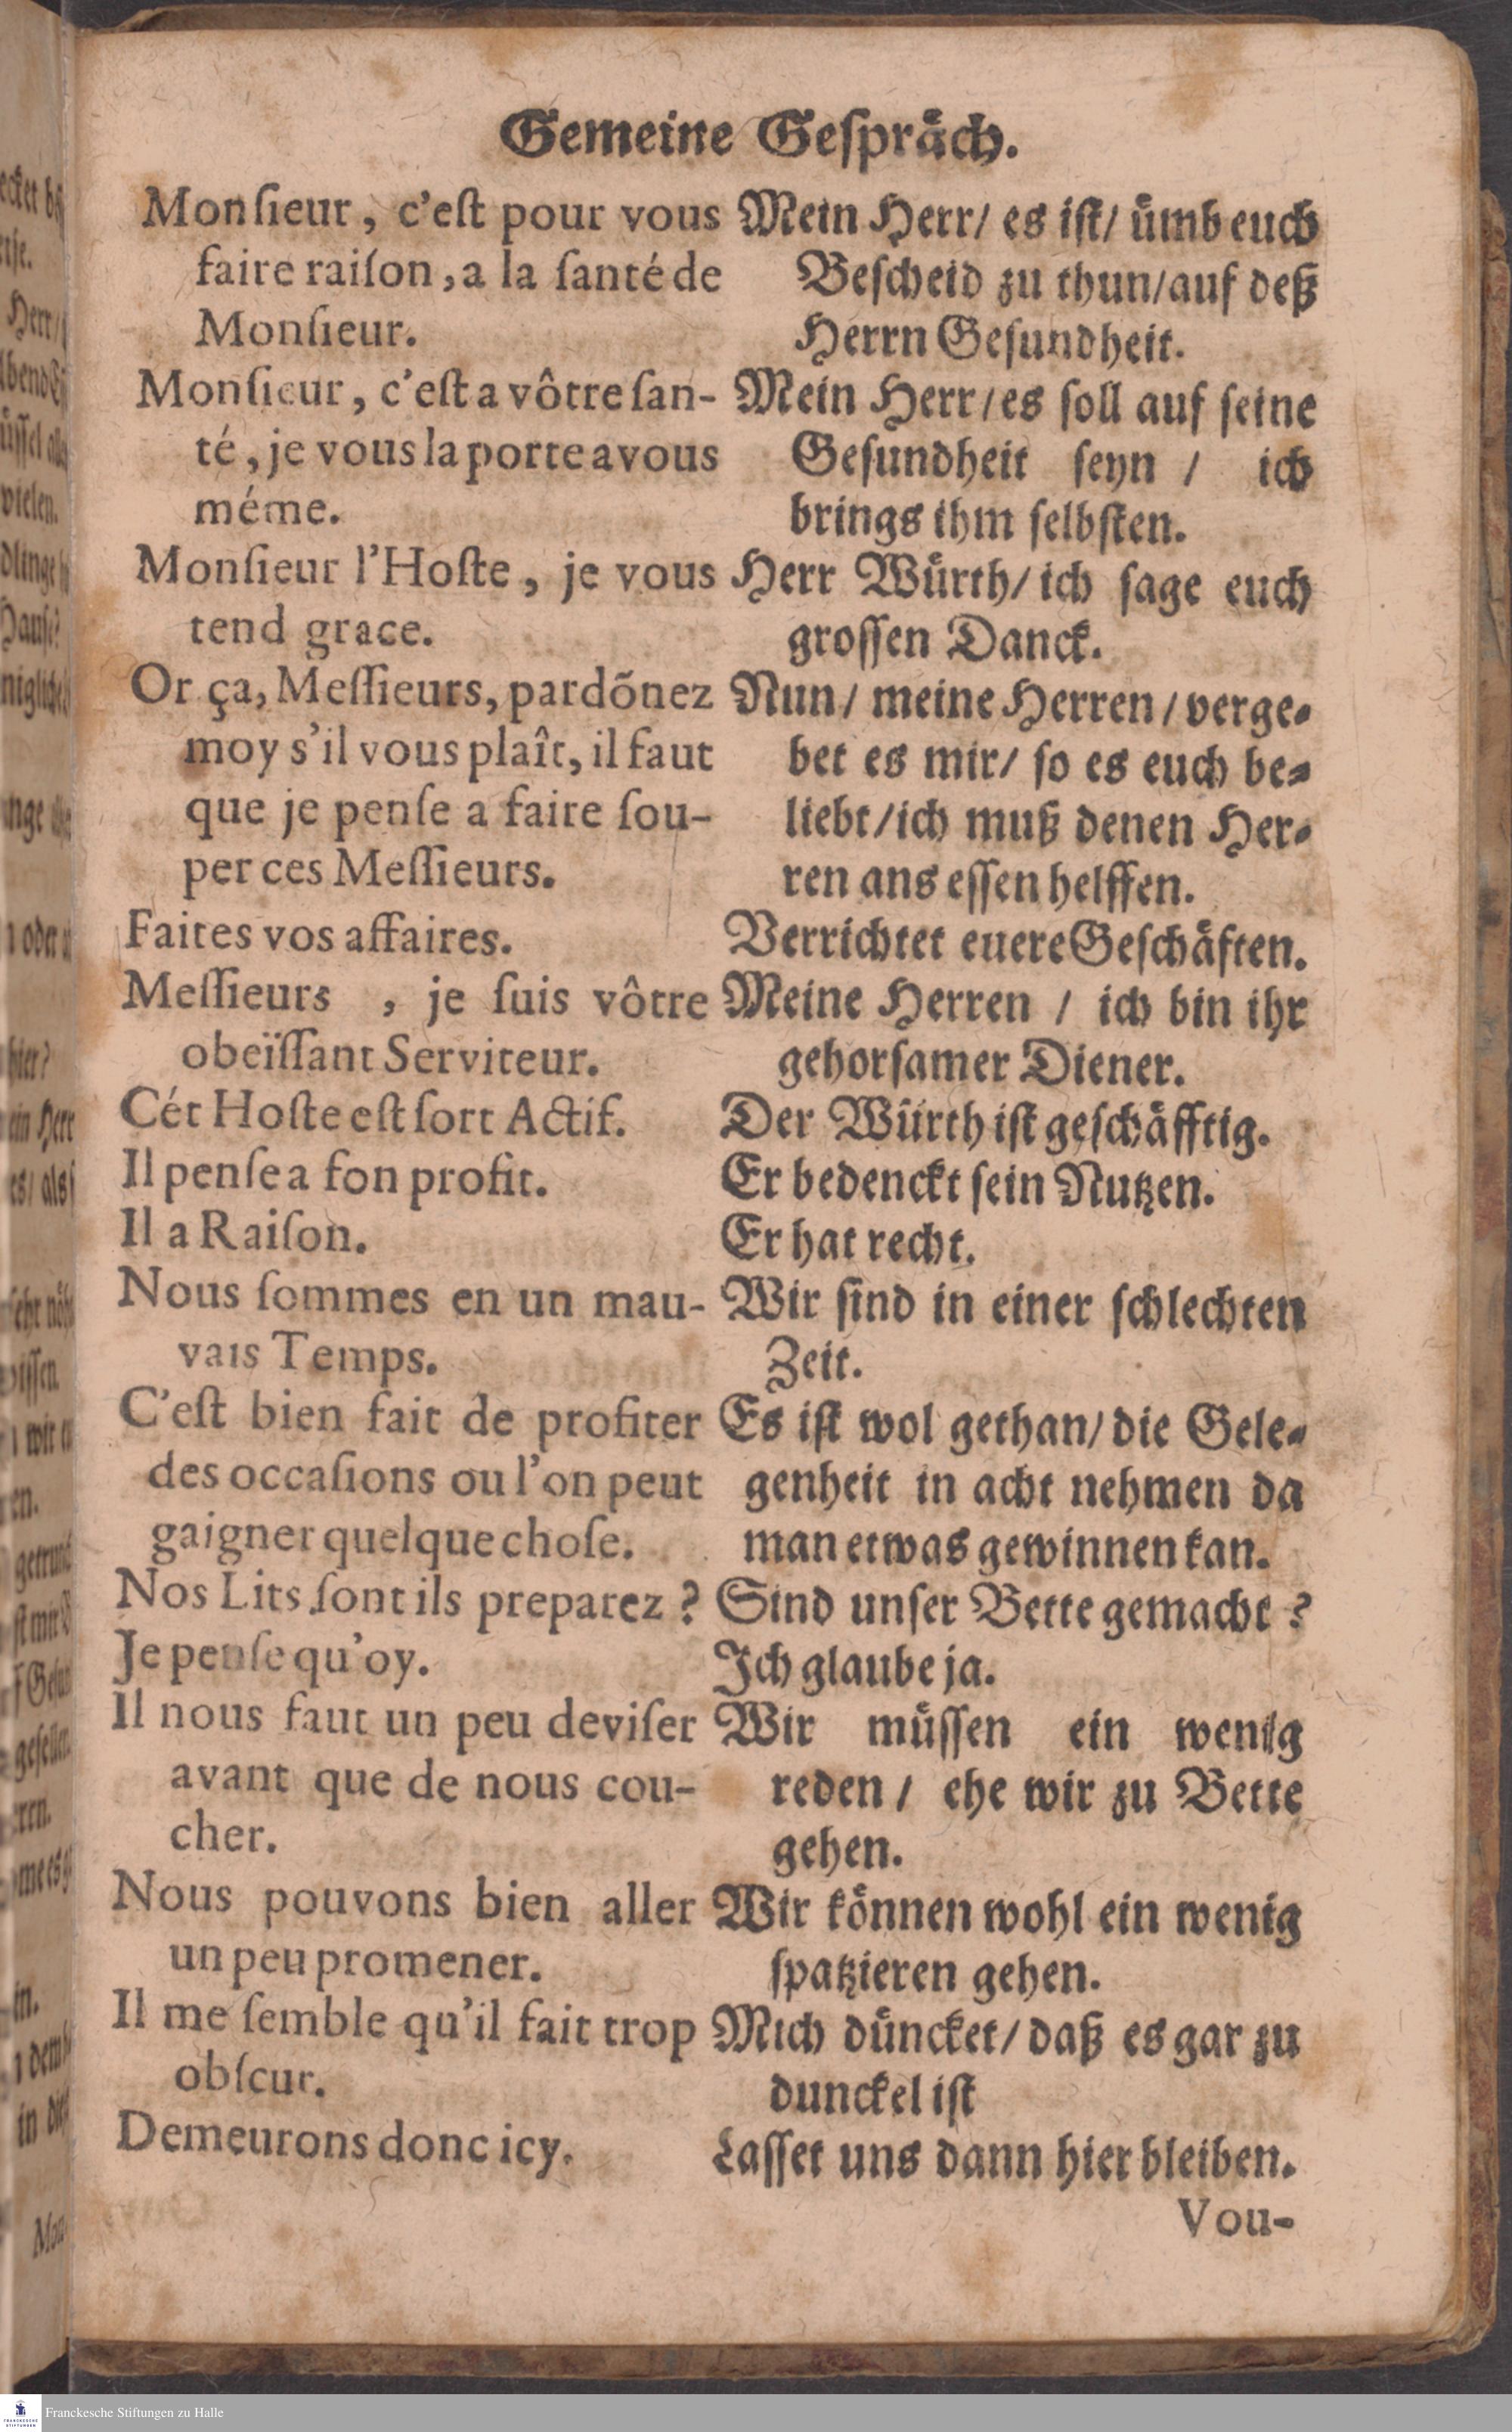 Gemeine Geſpraͤch.
Monſieur, c'eſt pour vous
faire raiſon, a la ſanté de
Monſieur.
Monſieur, c'eſt a vôtre ſan-
té, je vous la porte a vous
méme.
Monſieur l'Hoſte, je vous
tend grace.
Or ça, Meſſieurs, pardõnez
moy s'il vous plaît, il faut
que je penſe a faire ſou-
per ces Meſſieurs.
Faites vos affaires.
Meſſieurs , je ſuis vôtre
obeïſſant Serviteur.
Cét Hoſte eſt ſort Actif.
Il penſe a ſon profit.
Il a Raiſon.
Nous ſommes en un mau-
vais Temps.
C'eſt bien fait de profiter
des occaſions ou l'on peut
gaigner quelque choſe.
Nos Lits ſont ils preparez ?
Je penſe qu'oy.
Il nous faut un peu deviſer
avant que de nous cou-
cher.
Nous pouvons bien aller
un peu promener.
Il me ſemble qu'il fait trop
obſcur.
Demeurons donc icy.
Mein Herr/ es iſt/ uͤmb euch
Beſcheid zu thun/auf deß
Herrn Geſundheit.
Mein Herr/es ſoll auf ſeine
Geſundheit ſeyn / ich
brings ihm ſelbſten.
Herr Wuͤrth/ ich ſage euch
groſſen Danck.
Nun/ meine Herren / verge-
bet es mir/ ſo es euch be-
liebt/ich muß denen Her-
ren ans eſſen helffen.
Verrichtet euere Geſchaͤften.
Meine Herren / ich bin ihr
gehorſamer Diener.
Der Wuͤrth iſt geſchaͤfftig.
Er bedenckt ſein Nutzen.
Er hat recht.
Wir ſind in einer ſchlechten
Zeit.
Es iſt wol gethan/ die Gele-
genheit in acht nehmen da
man etwas gewinnen kan.
Sind unſer Bette gemacht ?
Ich glaube ja.
Wir muͤſſen ein wenig
reden / ehe wir zu Bette
gehen.
Wir koͤnnen wohl ein wenig
ſpatzieren gehen.
Mich duͤncket/ daß es gar zu
dunckel iſt
Laſſet uns dann hier bleiben.
Vou-
Franckesche Stiftungen zu Halle